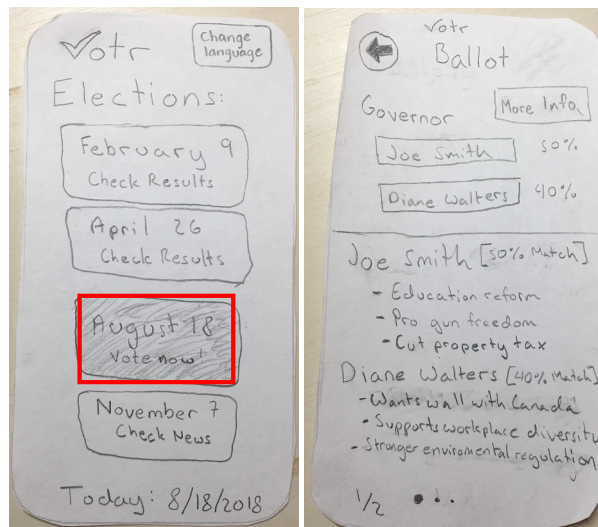 Votr
Change language
Elections:
February 9
Check Results
April 26
Check Results
August 18
Vote now!
November 7
Check News
Today: 8/18/2018
Votr
Ballot
Governor
More Info
Joe Smith 50%
Diane Walters 40%
Joe Smith [50% Match]
- Education reform
- Pro gun freedom
- Cut property tax
Diane Walters [40% Match]
- Wants wall with Canada
- Supports workplace diversity
- Stronger enviromental regulation
1/2